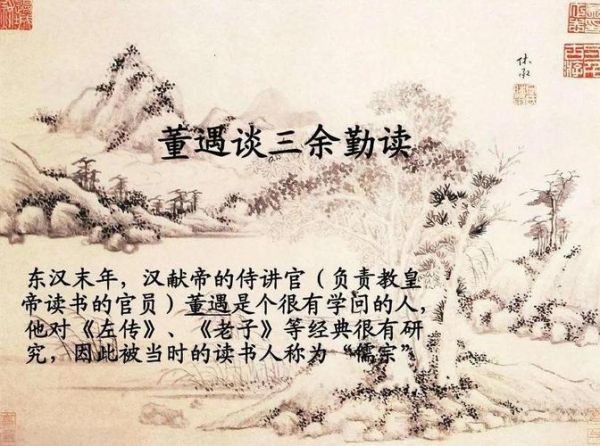 休承
董遇谈三余勤读
东汉末年，汉献帝的侍讲官（负责教皇
帝读书的官员）董遇是个很有学问的人，
他对《左传》、《老子》等经典很有研
究，因此被当时的读书人称为“儒宗”